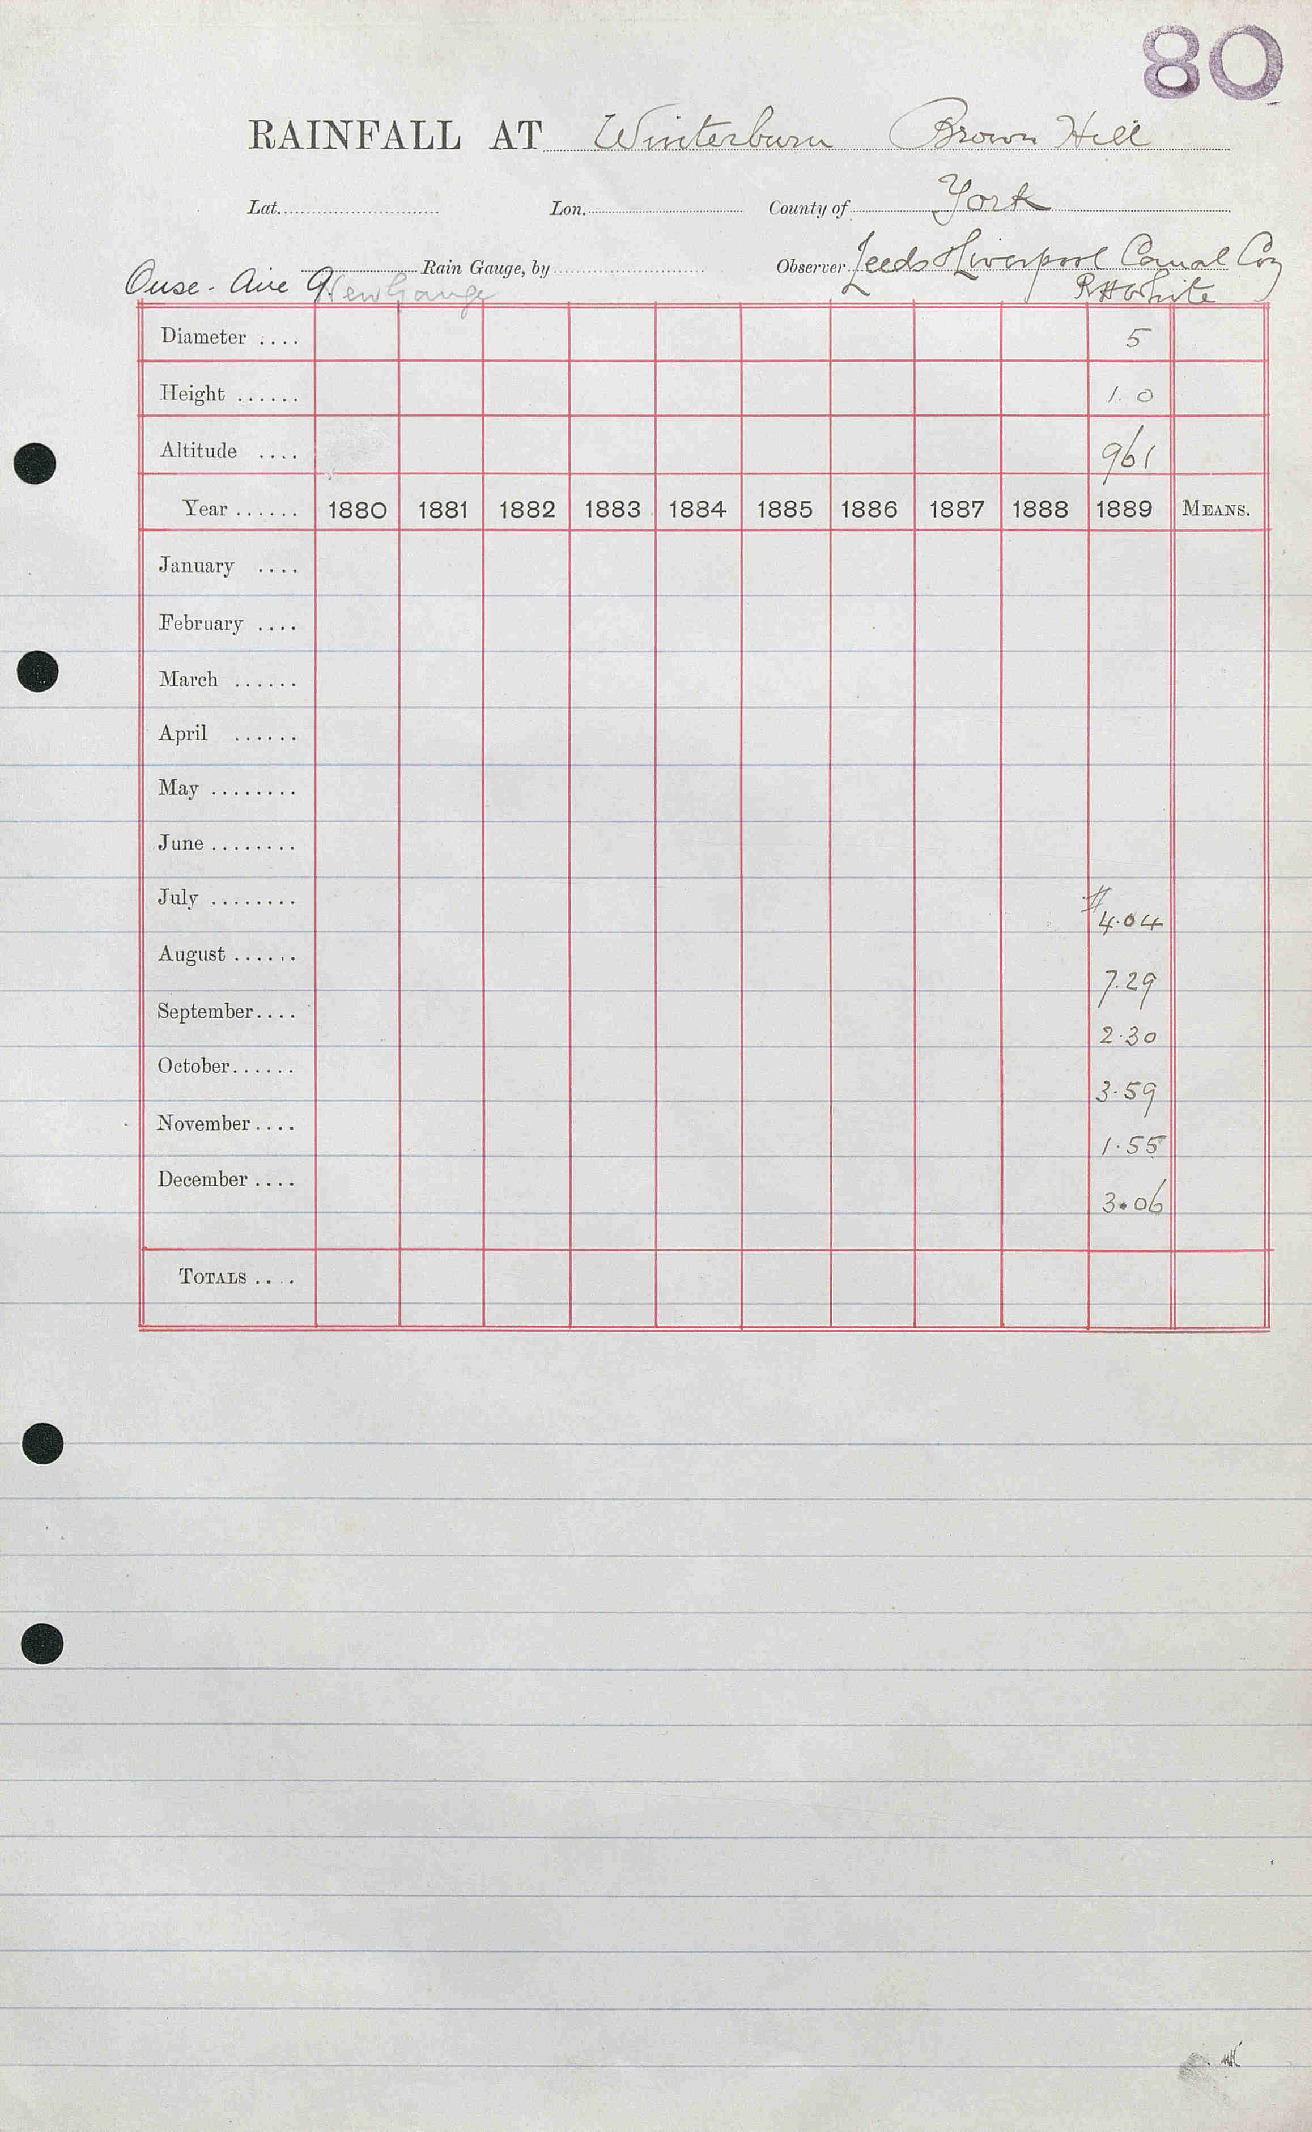 80
RAINFALL AT Winterburn Brown Hill
Lat. Lon. County of York
Rain Gauge, by Observer Leeds & Liverpool Canal Coy
Ouse - Aire 9 New Gauge R H White
Diameter .... 5
Height ...... 1.0
Altitude .... 961
Year ...... 1880 1881 1882 1883 1884 1885 1886 1887 1888 1889 MEANS.
January ....
February ....
March ......
April ......
May ........
June ........
July ........ # 4.04
August ...... 7.29
September.... 2.30
October...... 3.59
November.... 1.55
December.... 3.06
TOTALS ....